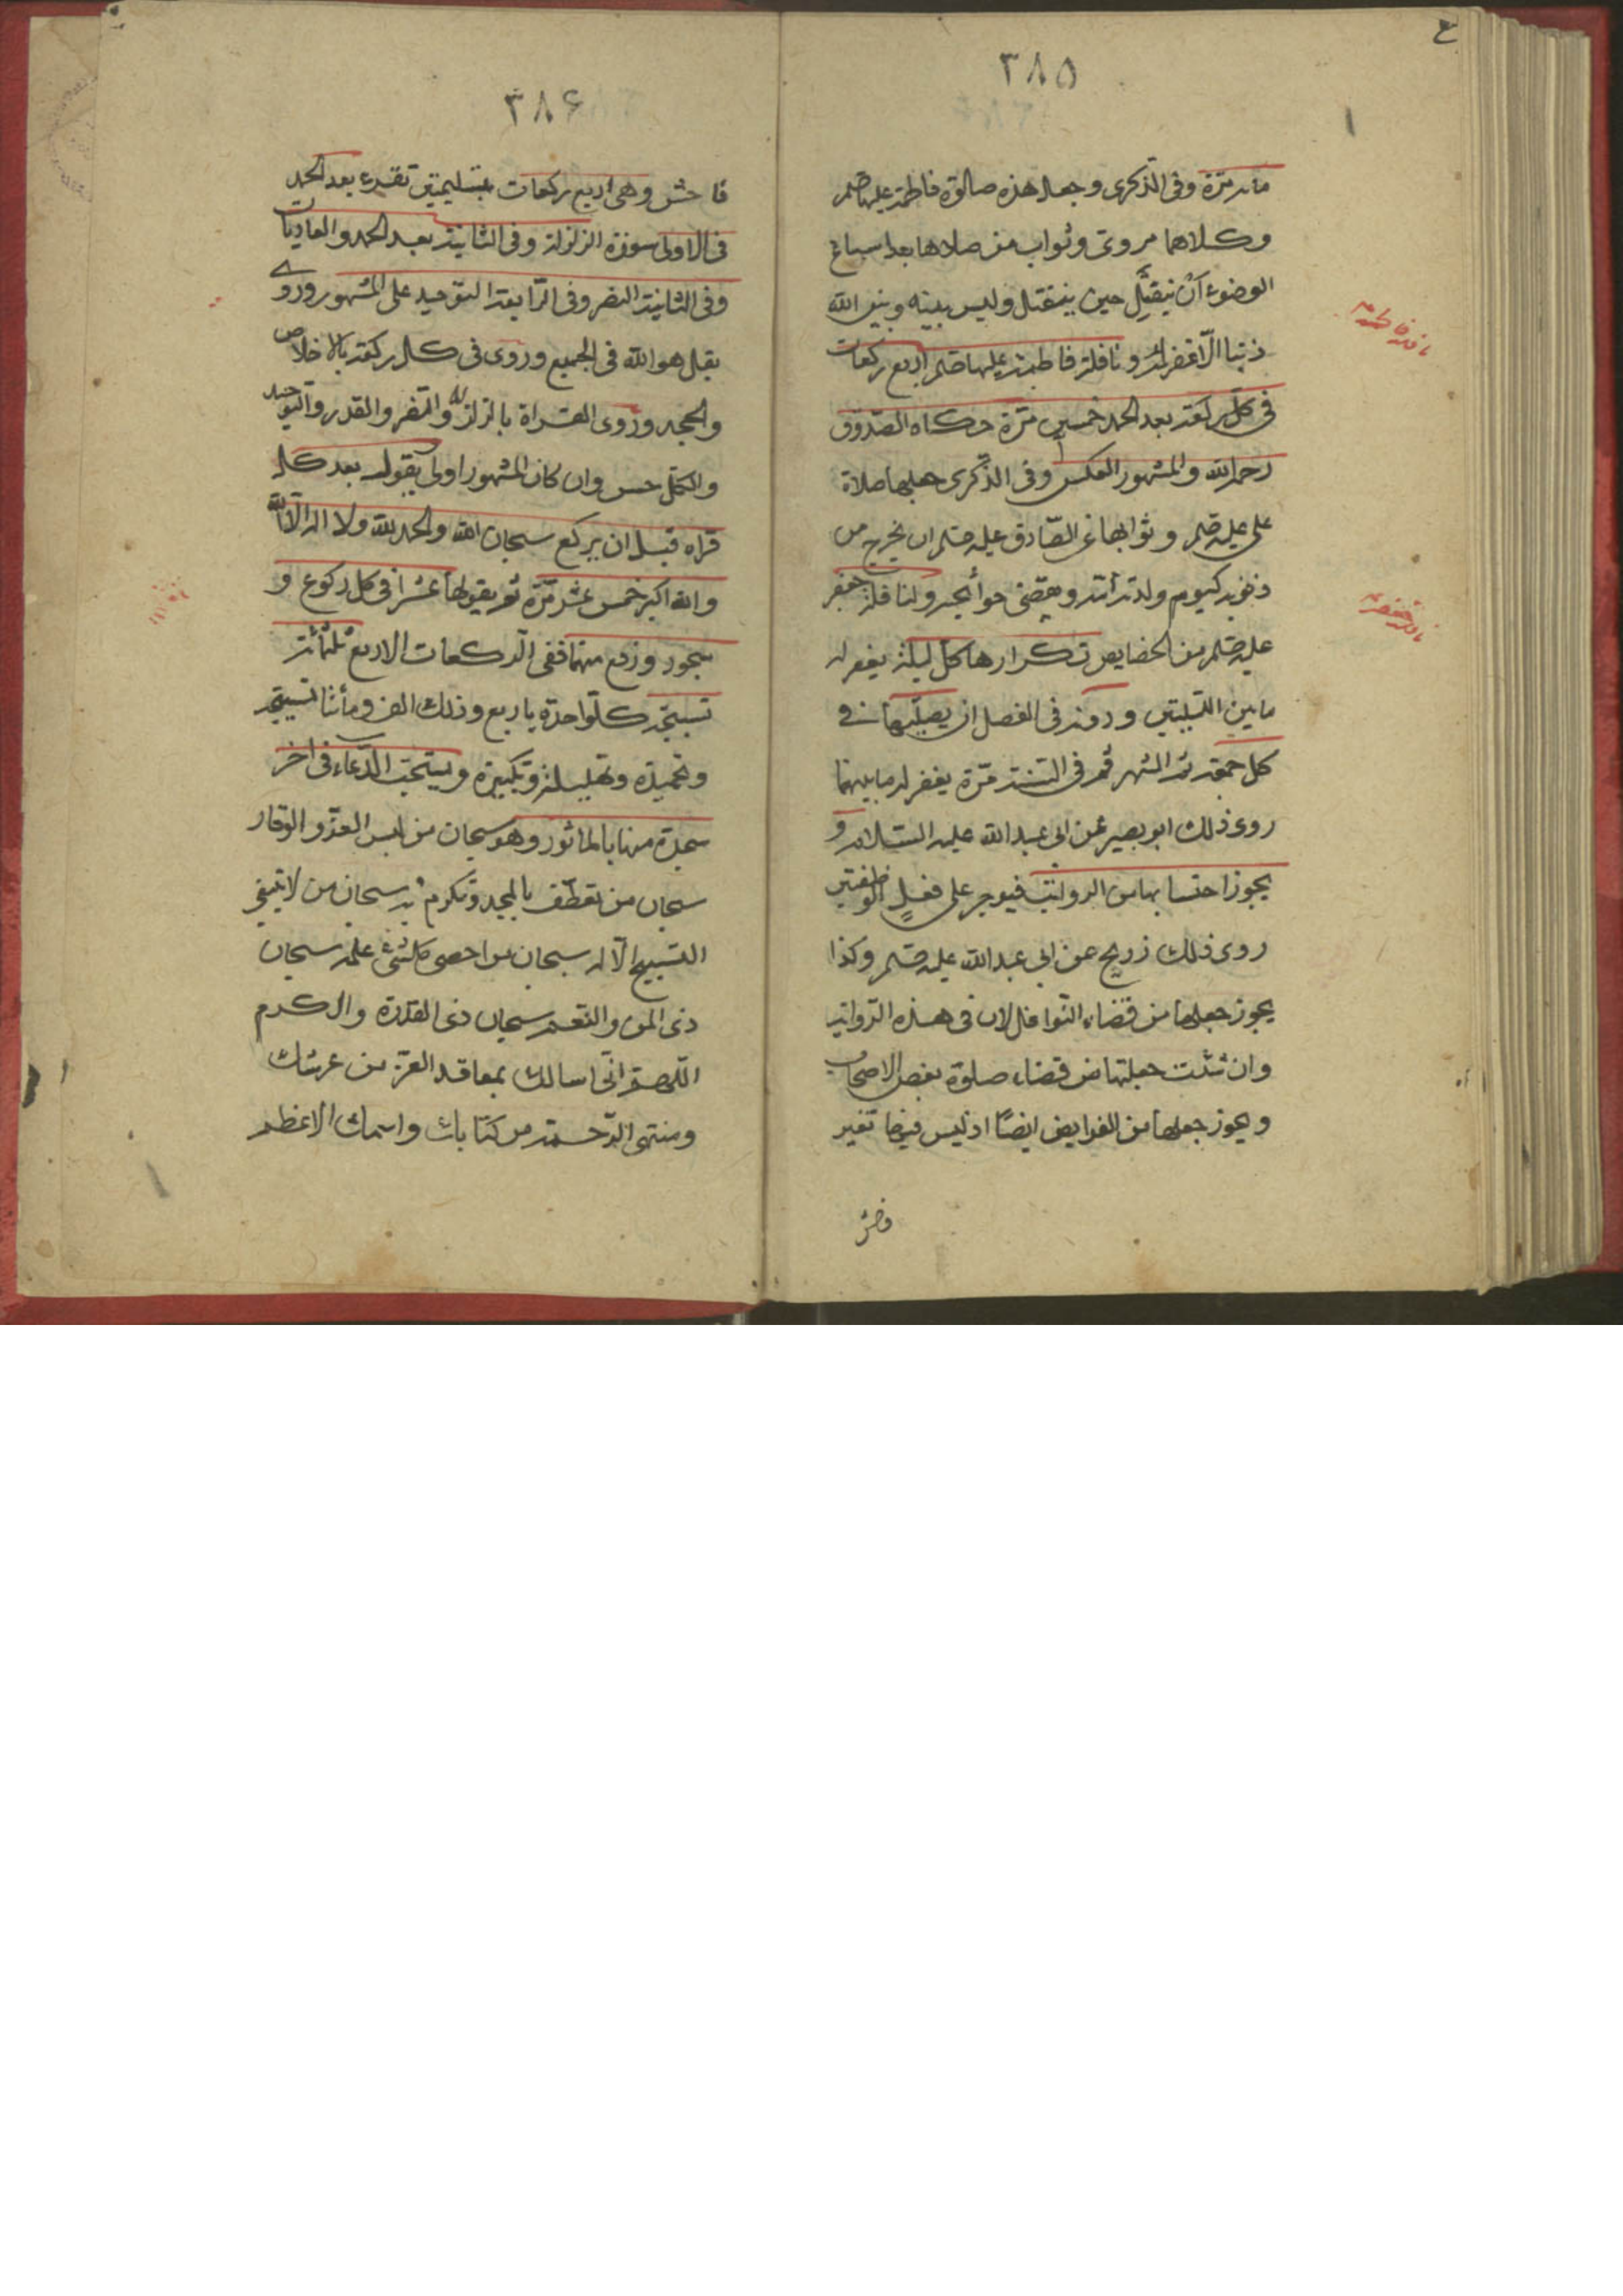 ٣٨٥
مائة مرّة وفى الذّكرى وجعل هذه صلوة فاطمة عليها صلم
وكلاهما مروىّ وثواب من صلاها بعد اسباغ
الوضوء أن ينفتل حين ينفتل وليس بينه وبين الله
ذنبا الّا غفر له ونافلة فاطمة عليها صلم اربع ركعات
فى كلّ ركعة بعد الحمد خمسين مرّة حكاه الصّدوق
رحمه الله والمشهور العكس وفى الذّكرى جعلها صلاة
على عليه صلم وثوابها عن الصّادق عليه صلم ان يخرج من
ذنوبه كيوم ولدته أمّه وقضى حوائجه ولنافلة جعفر
عليه صلم من الخصايص تكرارها كلّ ليلة يغفر له
ما بين الليلتين ودونه فى الفصل ان يصلّيها فى
كل جمعة ثمّ الشهر ثم فى السّنة مرّة يغفر له ما بينهما
روى ذلك ابو بصير عن ابى عبد الله عليه السّلام و
يجوز احتسابها من الرواتب فيوجر على فعل الوظيفتين
روى ذلك ذريح عن ابى عبد الله عليه صلم وكذا
يجوز جعلها من قضاء النّوافل لان فى هذه الرّواية
وان شئت جعلتها من قضاء صلوة بعض الاصحاب
ويجوز جعلها من الفرايض ايضًا اذ ليس فيها تغير
فاحش
نافلة فاطمة
نافلة جعفر
٣٨۶
فاحش وهى اربع ركعات بتسليمتين تقرء بعد الحمد
فى الاولى سورة الزلزلة وفى الثانية بعد الحمد والعاديات
وفى الثانية النصر وفى الرّابعة التوحيد على المشهور وروى
بقل هو الله فى الجميع وروى فى كل ركعة بالاخلاص
والجحد وروى القراة بالزلزلة والنصر والقدر والتوحيد
والكل حسن وان كان المشهور اولى يقول بعد كل
قراه قبل ان يركع سبحان الله والحمد لله ولا اله الّا الله
والله اكبر خمس عشر مّرة ثم يقولها عشرا فى كل ركوع و
سجود ورفع منهما ففى الركعات الاربع ثلثمائة
تسبيحة كلّ واحدة باربع وذلك الف ومأتا تسبيحة
وتحميدة وتهليلة وتكبيرة ويستحبّ الدّعاء فى اخر
سجدة منها بالماثور وهو سبحان من لبس العزّ والوقار
سبحان من تعطّف بالمجد وتكرم به سبحان من لا ينبغى
التسبيح الّا له سبحان من احصى كلشئ علمه سبحان
ذى المن والنّعم سبحان ذى القدرة والكرم
اللّهمّ انّى اسالك بمعاقد العزّ من عرشك
ومنتهى الرّحمة من كتابك واسمك الاعظم